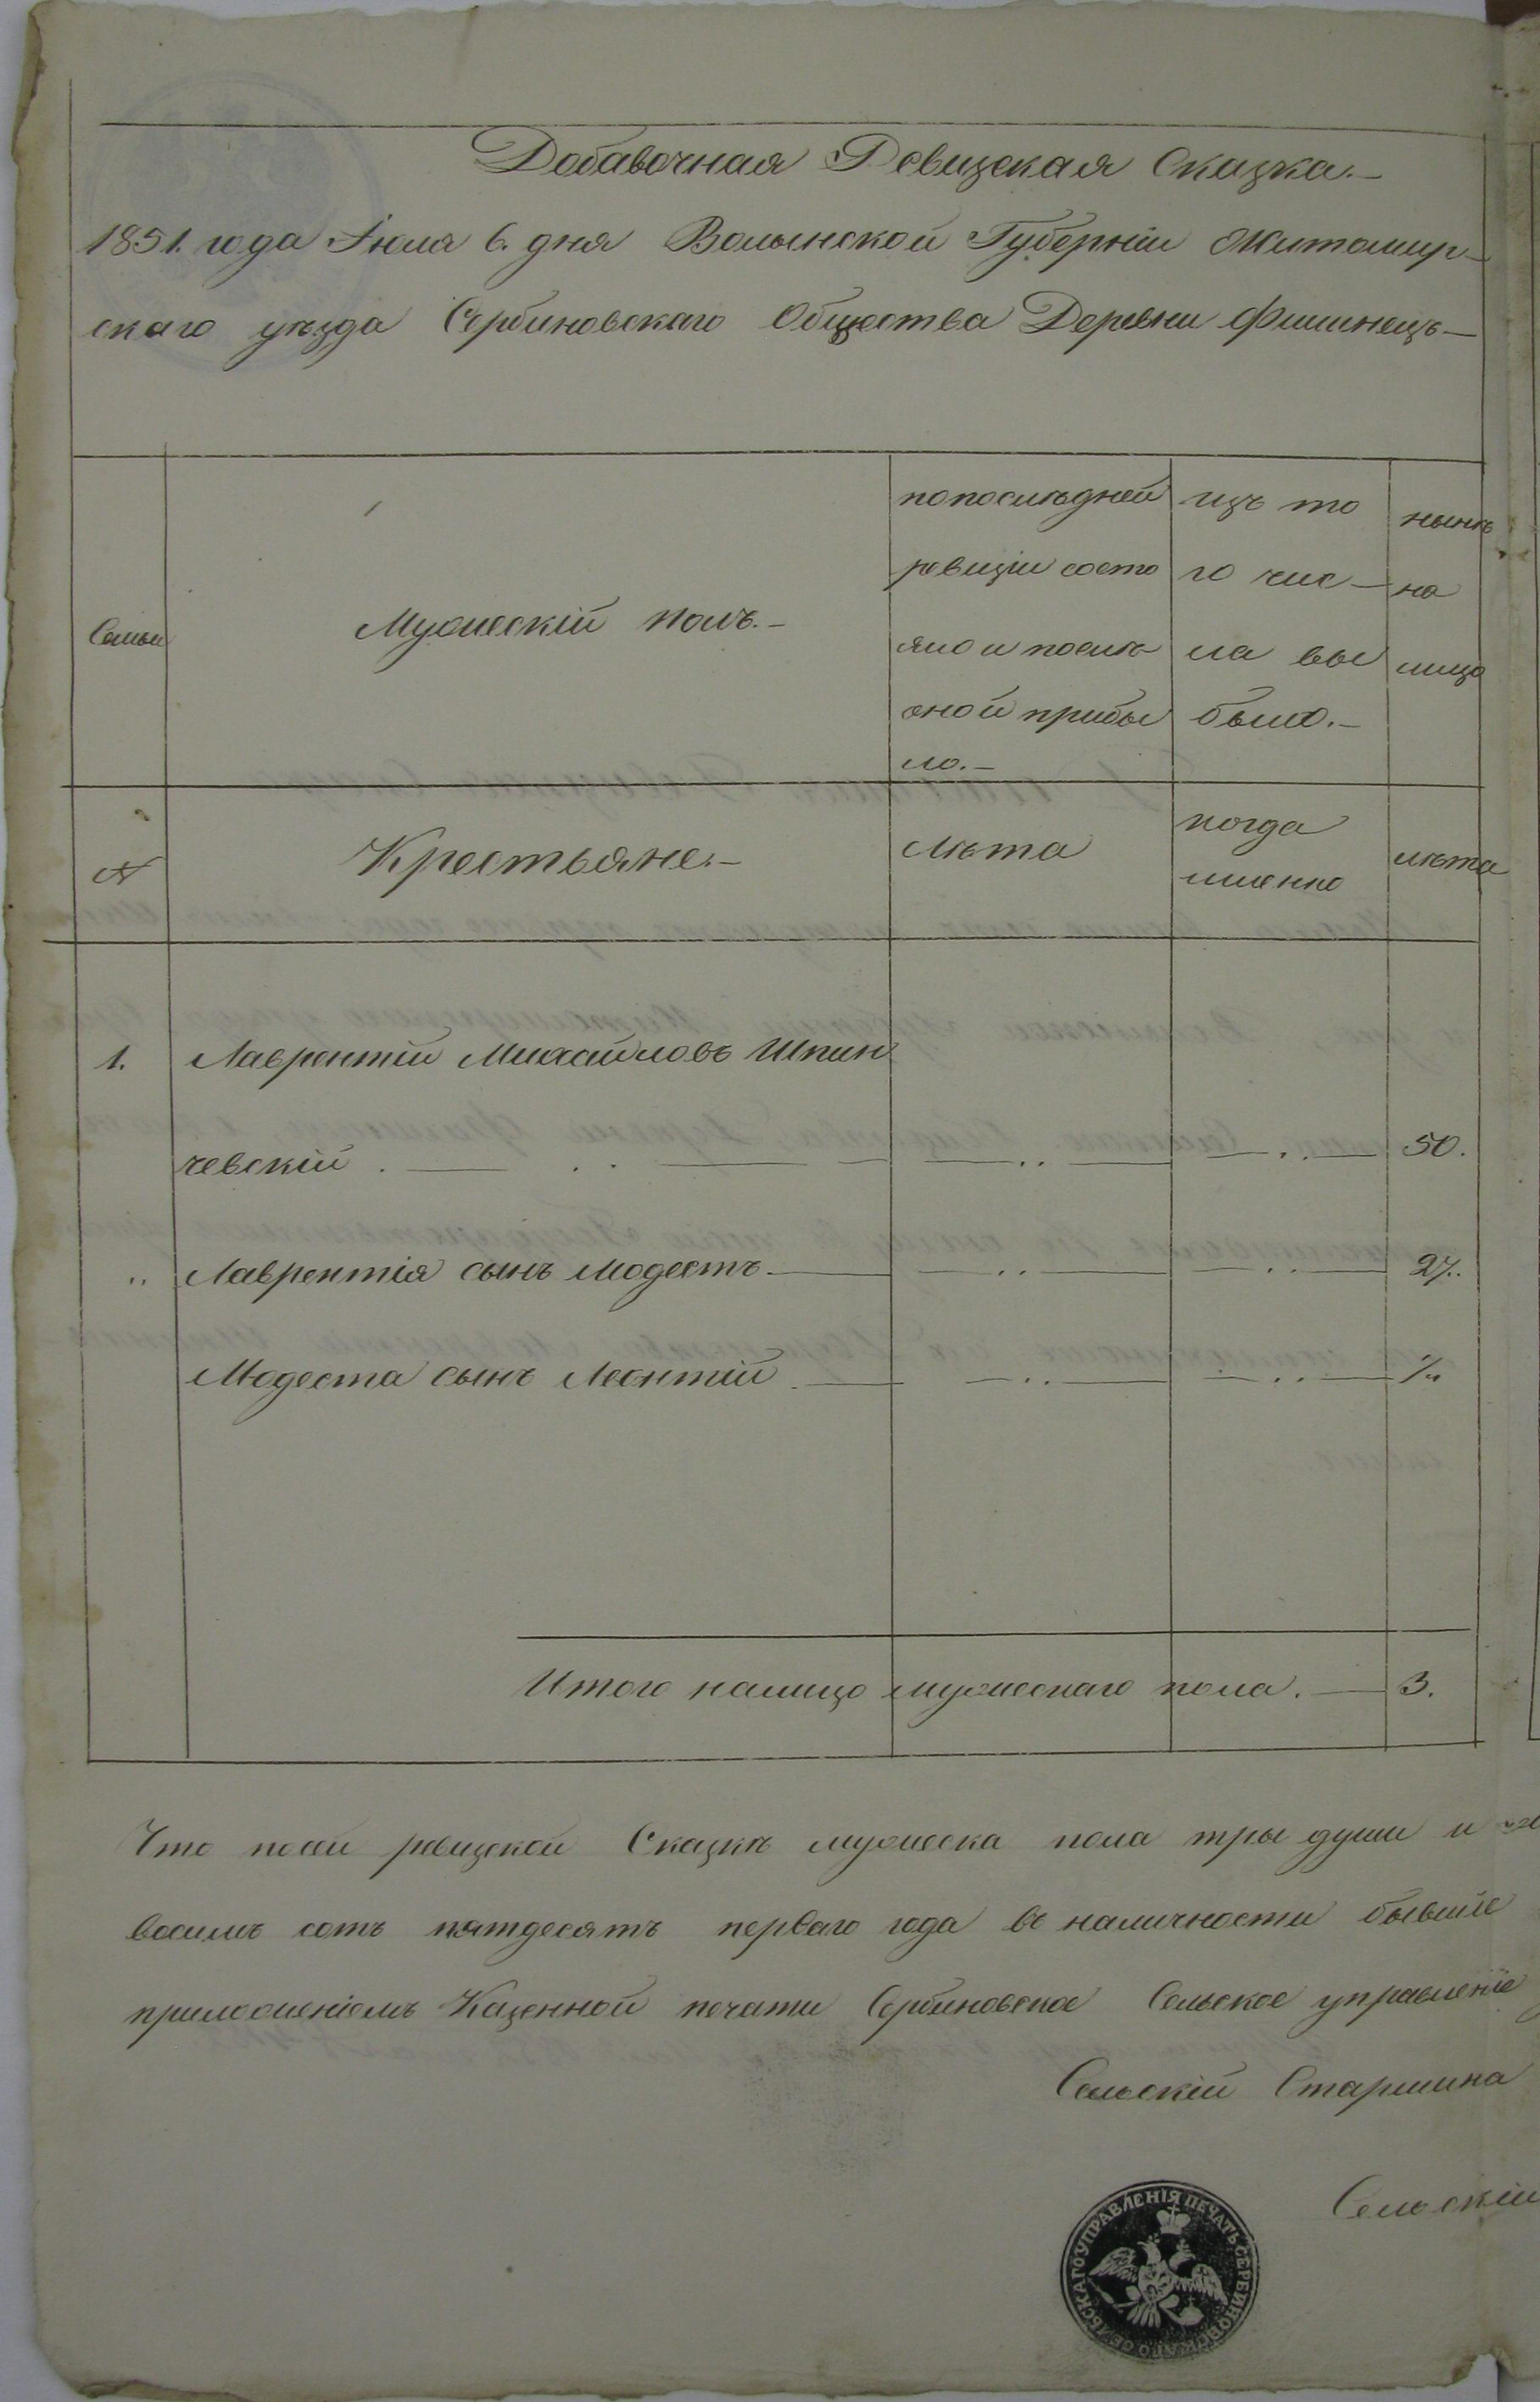 Добавочная Ревизская Сказка.—
1851. года Іюля 6. дня Волынской Губерніи Житомир-
скаго уѣзда Сербиновскаго Общества Деревни Фишинець—
Семьи
Мужескій полъ.—
попослѣдней
ревизіи состо
яло и послѣ
оной прибы
ло.—
изъ то
го чис—
ла вы
было.—
нынѣ
на
лицо
№
Крестьяне.—
лѣта
когда
именно
лѣта
1. Лаврентій Михайловъ Шпин
чевскій . — . . — — .. — — .. — 50.
.. Лаврентія сынъ Модестъ. — — .. — — .. — 27.
Модеста сынъ Леонтій . — — .. — — .. —
Итого налицо мужескаго пола. — 3.
Что посей ревизской Сказкѣ мужеска пола тры души и
восимъ сотъ пятдесятъ перваго года въ наличности бывшіе
приложеніемъ Казенной печати Сербиновское Сельское управленіе
Сельскій Старшина
Сельскій
ПЕЧАТЬ СЕРБИНОВСКАГО СЕЛЬСКАГО УПРАВЛЕНІЯ